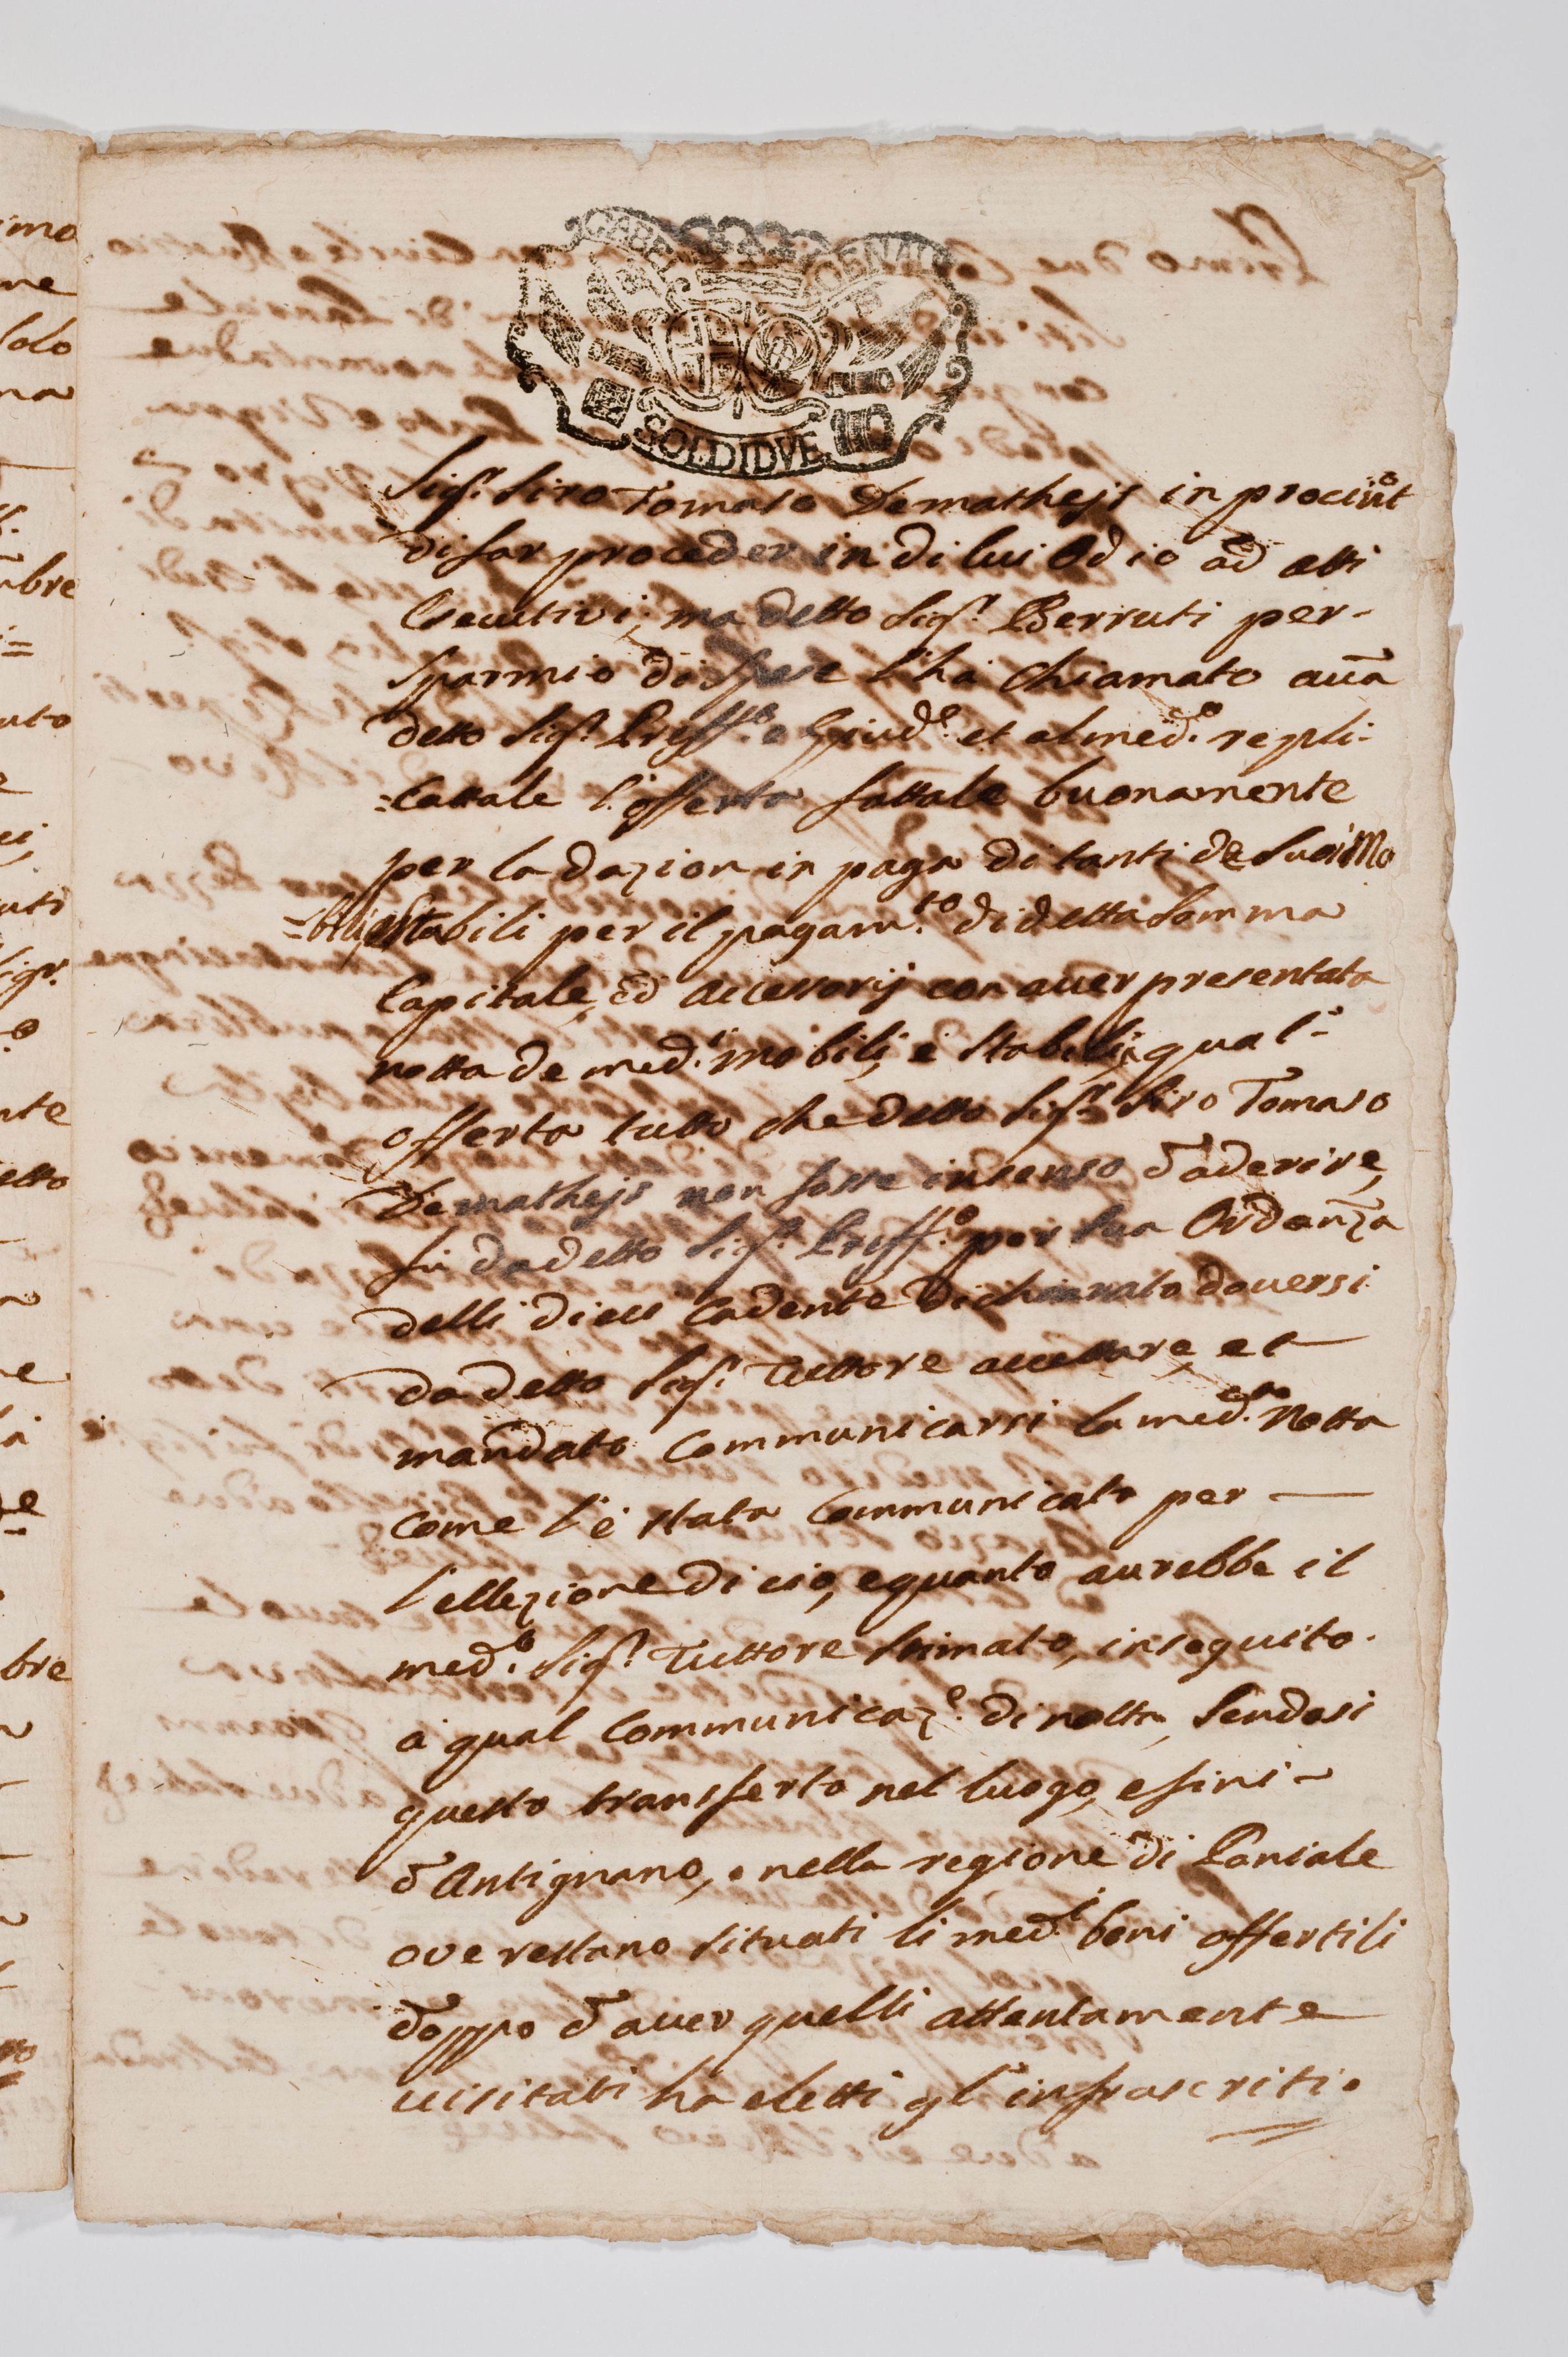 SOLDI DVE
Sig.r Siro Tomaso Demathejs in procint.o
di far proceder in di lui odio ad atti
Esecutivi, ma detto Sig.r Berruti per-
sparmio di spese l'ha chiamato auã
detto Sig.r Preff.o e Giud.e et al med.o repli-
:cattale l'offerta fattale buonamente
per la dazion in paga di tanti de suoi mo
=bili, e stabili per il pagam.to di detta somma
Capitale, ed accessorij con auer presentata
notta de med.i mobili, e stabili, qual'-
offerta tutto che detto Sig.r Siro Tomaso
Demathejs non fosse in senso d'aderire,
fu da detto Sig.r Preff.o per sua Ordanza
delli dieci cadente dichiarato douersi
da detto Sig.r Tuttore accettare, et
mandato communicarsi la med.ma Notta
come l'è stata communicata per —
l'ellezione di cio, e quanto aurebbe il
med.o Sig.r Tuttore stimato, in seguito
à qual communicaz.e di notta, sendosi
questo transferto nel luogo, e fini-
d'Antignano, e nella regione di Paniale
ove restano situati li med.i beni offertili
doppo d'auer quelli attentamente
uisitati ha eletti gl'infrascritti.
imo
ne
solo
na
bre
uto
uti
Sig.r
nte
etto
bre